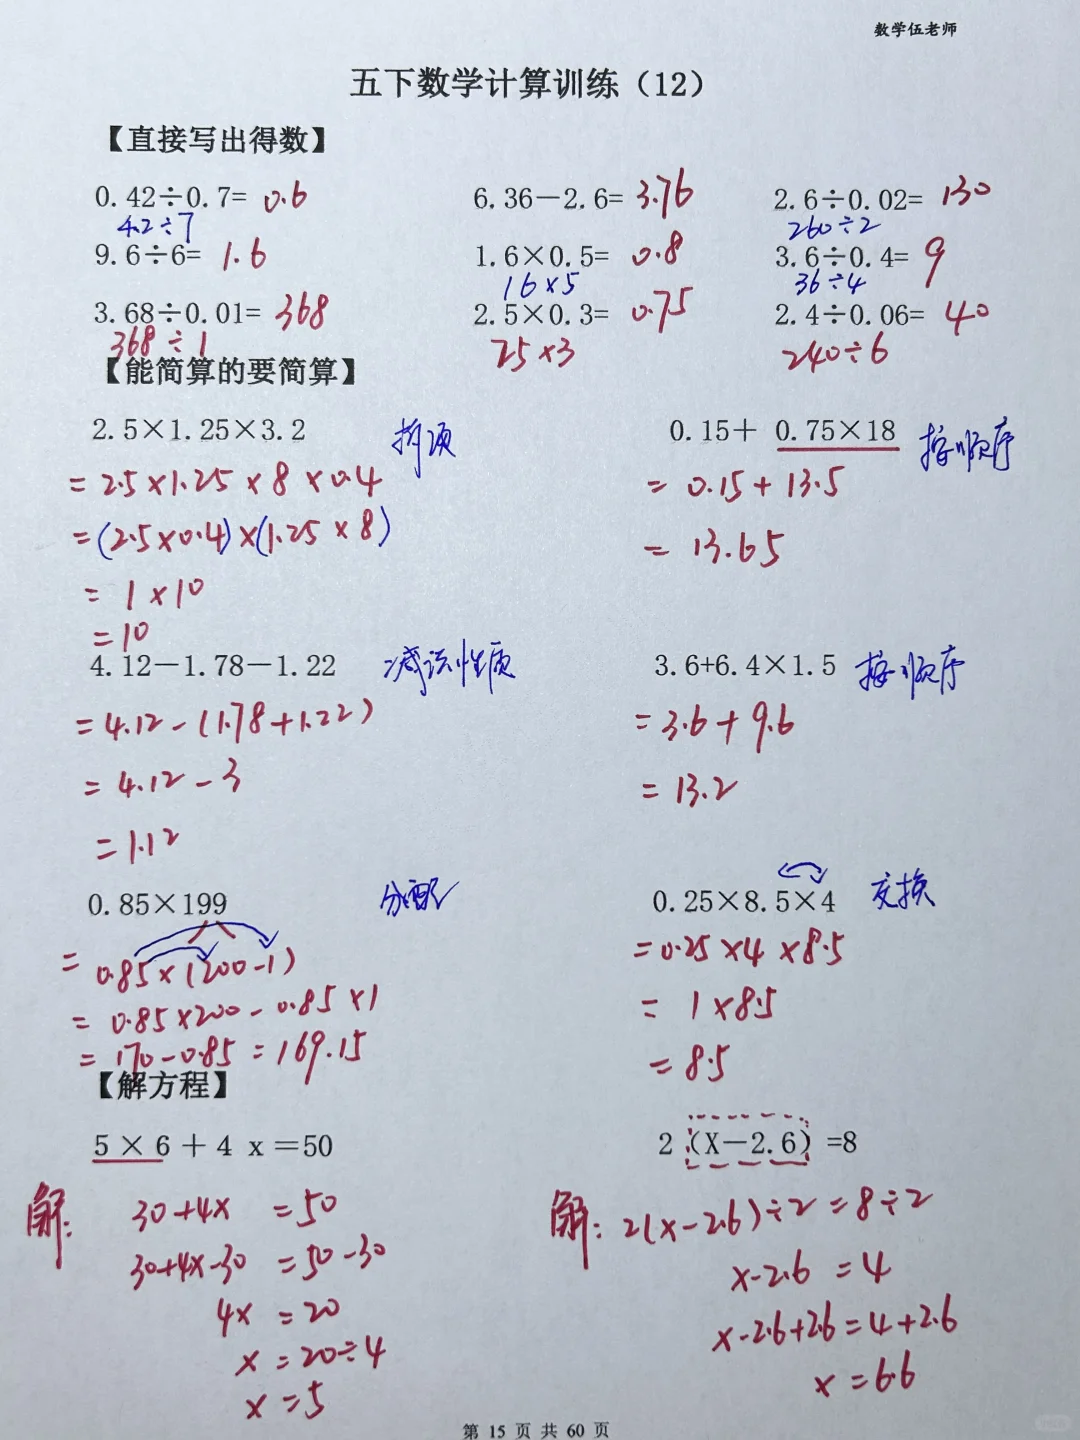 数学伍老师
五下数学计算训练（12）
【直接写出得数】
0.42÷0.7= 0.6 6.36－2.6= 3.76 2.6÷0.02= 130
4.2÷7 260÷2
9.6÷6= 1.6 1.6×0.5= 0.8 3.6÷0.4= 9
16×5 36÷4
3.68÷0.01= 368 2.5×0.3= 0.75 2.4÷0.06= 40
368÷1 25×3 240÷6
【能简算的要简算】
2.5×1.25×3.2 拆项 0.15＋0.75×18 按顺序
=2.5×1.25×8×0.4 =0.15+13.5
=(2.5×0.4)×(1.25×8) =13.65
=1×10
=10
4.12－1.78－1.22 减法性质 3.6+6.4×1.5 按顺序
=4.12-(1.78+1.22) =3.6+9.6
=4.12-3 =13.2
=1.12
0.85×199 分配 0.25×8.5×4 交换
=0.85×(200-1) =0.25×4×8.5
=0.85×200-0.85×1 =1×8.5
=170-0.85=169.15 =8.5
【解方程】
5×6＋4x＝50 2（X－2.6）=8
解: 30+4x=50 解: 2(x-2.6)÷2=8÷2
30+4x-30=50-30 x-2.6=4
4x=20 x-2.6+2.6=4+2.6
x=20÷4 x=6.6
x=5
第 15 页 共 60 页